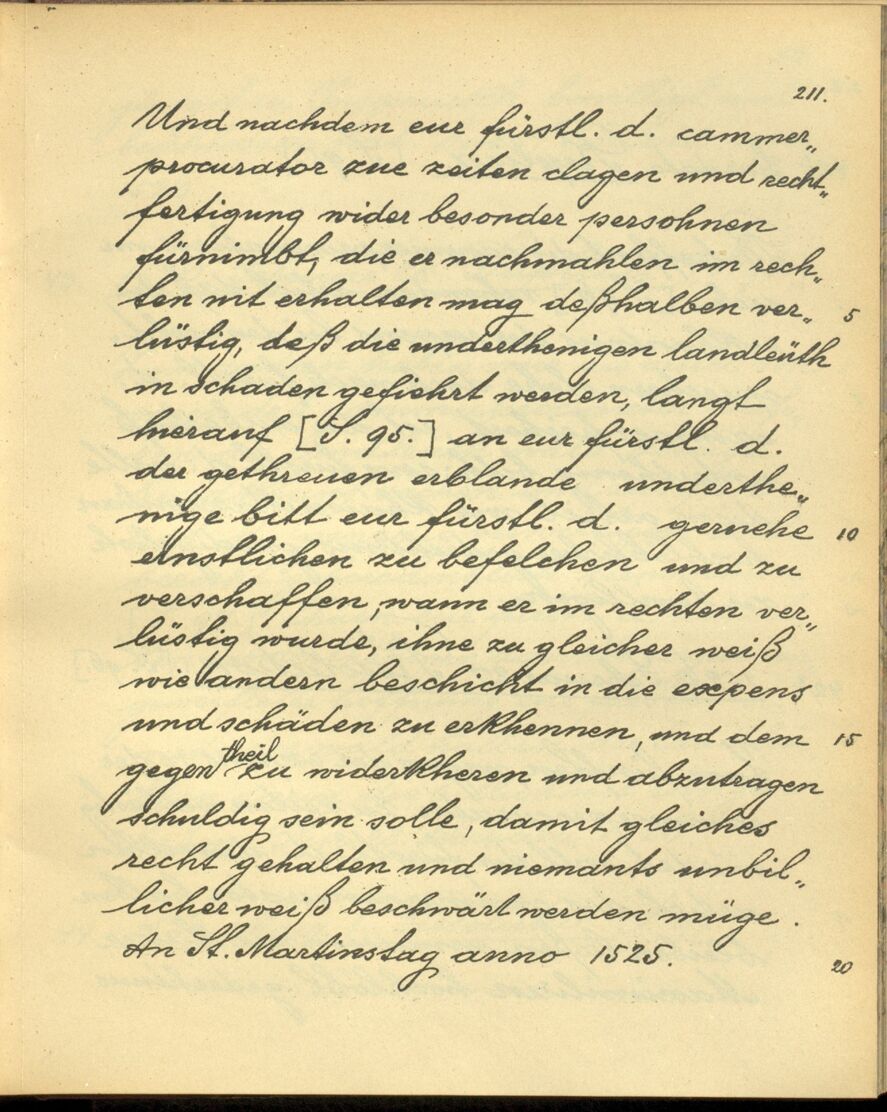 211.
Und nachdem eur fürstl. d. cammer„
procurator zue zeiten clagen und recht„
fertigung wider besonder persohnen
fürnimbt, die er nachmahlen im rech„
ten nit erhalten mag deßhalben ver„ 5
lüstig, deß die underthenigen landleüth
in schaden gefiehrt werden, langt
hierauf [S. 95.] an eur fürstl. d.
der gethreuen erblande underthe„
nige bitt eur fürstl. d. geruehe 10
ernstlichen zu befelchen und zu
verschaffen, wann er im rechten ver„
lüstig wurde, ihne zu gleicher weiß
wie andern beschicht in die expens
und schäden zu erkhennen, und dem 15
gegentheil zu widerkheren und abzutragen
schuldig sein solle, damit gleiches
recht gehalten und niemants unbil„
licher weiß beschwärt werden müge.
An St. Martinstag anno 1525. 20